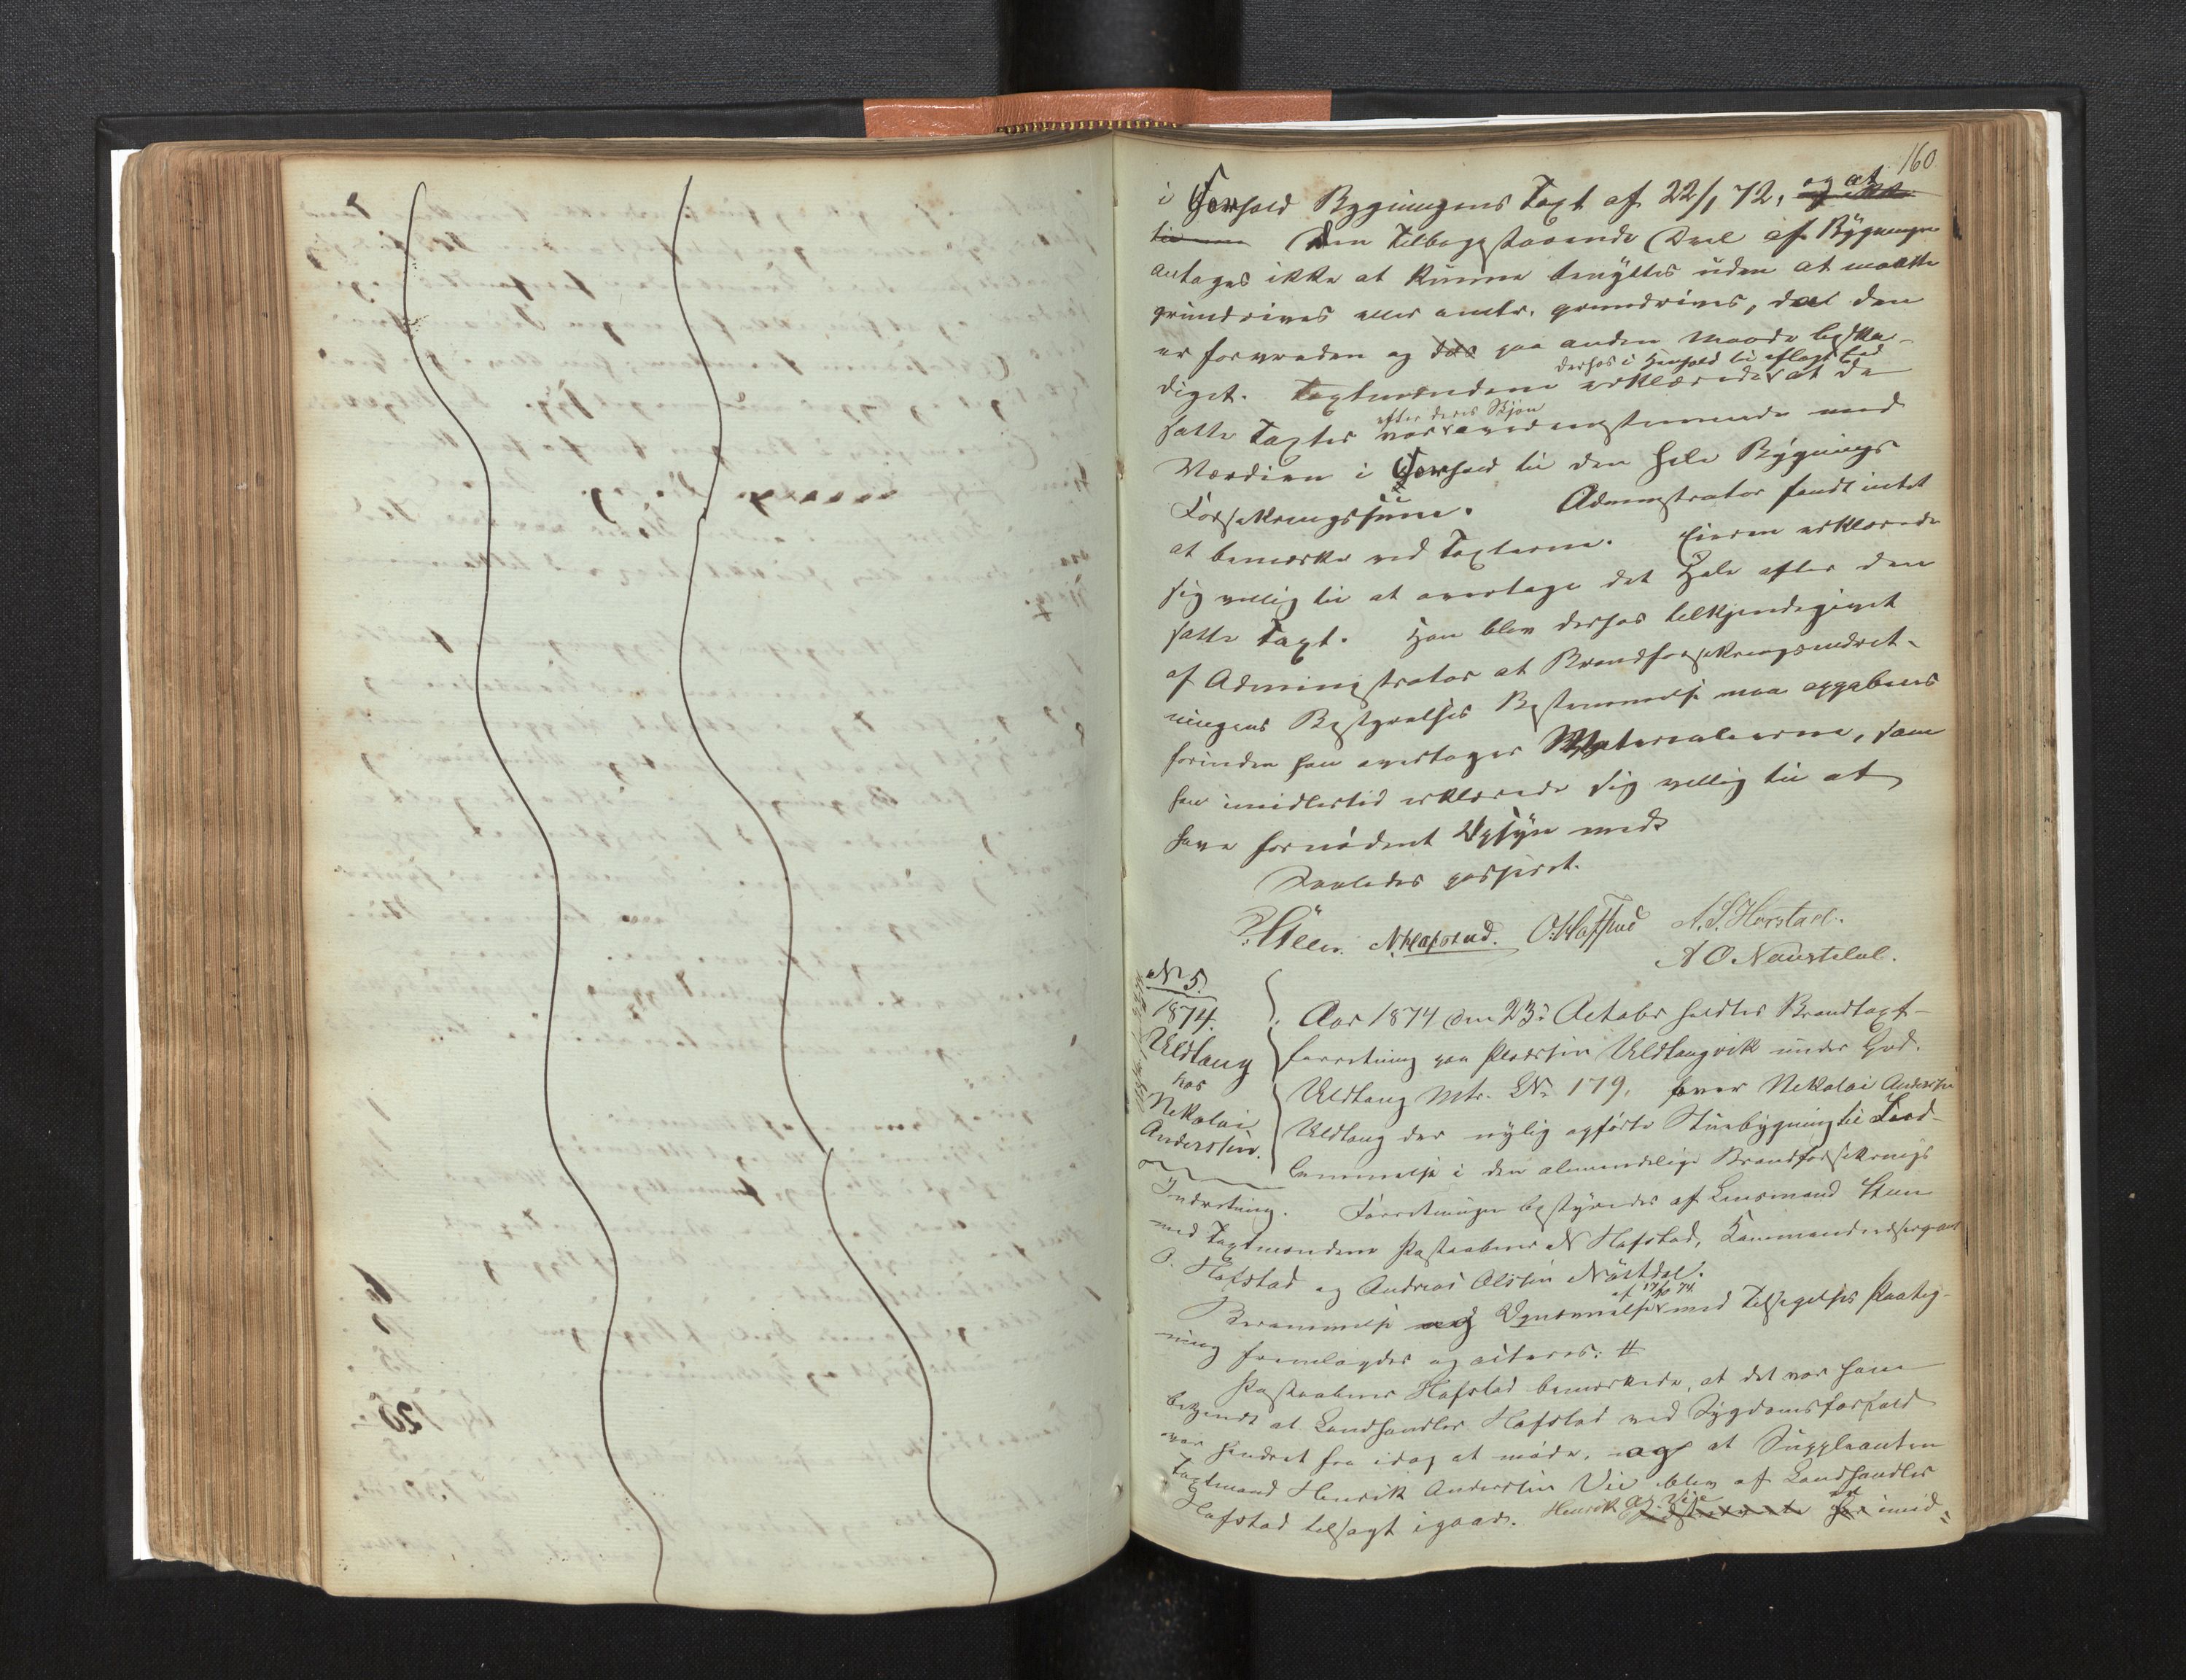 160
i Forhold Bygningens Taxt af 22/1 72, og at
den tilbagestaaende Deel af Bygningen
antages ikke at kunne benyttes uden at maatte
grundrives eller omtr. grundrives, da den
er forvreden og paa anden Maade beska-
diget. Taxtmændene derhos i Henhold til aflagt Eed erklærede at de
satte Taxter efter deres Skjøn var overensstemmende med
Værdien i Forhold til den hele Bygnings
Forsikringssum. Administrator fandt intet
at bemærke ved Taxterne. Eieren erklærede
sig villig til at overtage det Hele efter den
satte Taxt. Han blev derhos tilkjendegivet
af Administrator at Brandforsikringsindret-
ningens Bestyrelses Bestemmelse maa oppebies
forinden han overtager Materialierne, som
han imidlertid erklærede sig villig til at
have fornødent Opsyn med.
Saaledes passeret.
P. Steen. N. Hafstad. O. Hafstad A. S. Horstad.
A O Naustdal.
No 5.
1874.
Uldtang
hos
Nikolai
Anderssen.
Aar 1874 den 23de Octobr holdtes Brandtaxt-
forretning paa Pladsen Uldtangvik under Grd.
Uldtang Mtr. LNr 179, over Nikolai Anderssen
Uldtang der nylig opførte Stuebygning til Ind-
lemmelse i den almindelige Brandforsikrings
Indretning. Forretningen bestyredes af Lensmand Steen
med Taxtmændene Postaabner N Hafstad, Kommandersergeant
O. Hafstad og Andreas Olssen Nøstdal.
Berammelse og Opnævnelse af 17/10 74 med Tilsigelses Paateg-
ning fremlagdes og citeres: #
Postaabner Hafstad bemærkede, at det var ham
bekjendt at Landhandler Hafstad ved Sygdomsforfald
var hindret fra idag at møde, og at Suppleanten
Taxtmand Henrik Anderssen Vie blev af Landhandler
Hafstad tilsagt igaar. Henrik A. Vie imid-